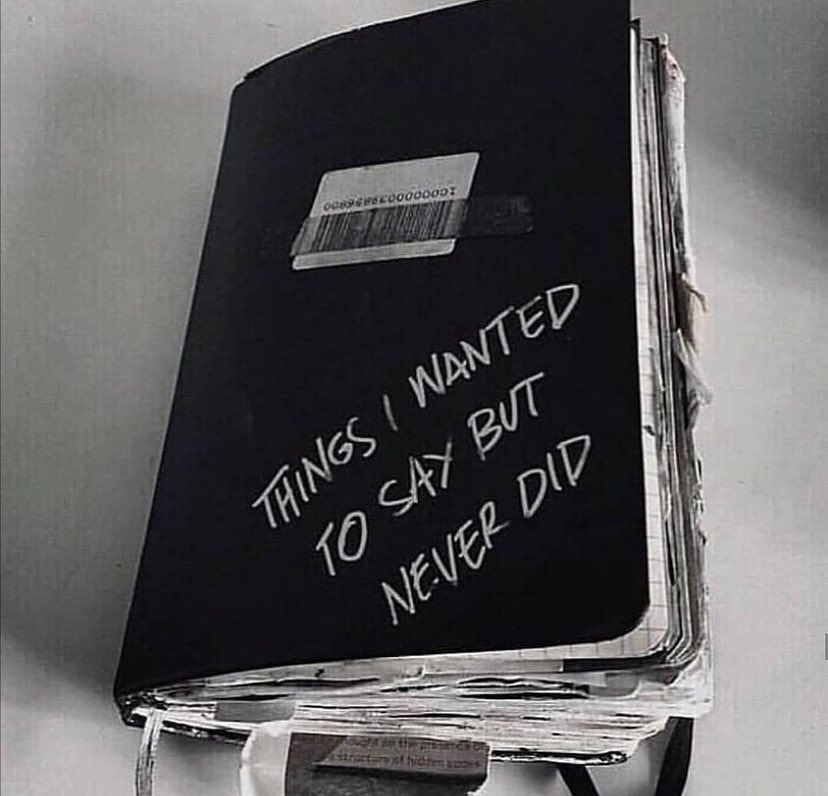 THINGS I WANTED
TO SAY BUT
NEVER DID
on the presence of
structure of hidden codes